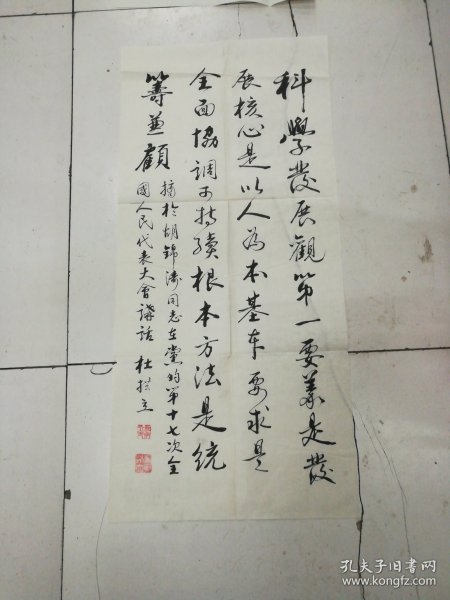 科學發展觀第一要義是發
展核心是以人為本基本要求是
全面協調可持續根本方法是統
籌兼顧
摘於胡錦濤同志在黨的第十七次全
國人民代表大會講話 杜
孔夫子旧书网
www.kongfz.com